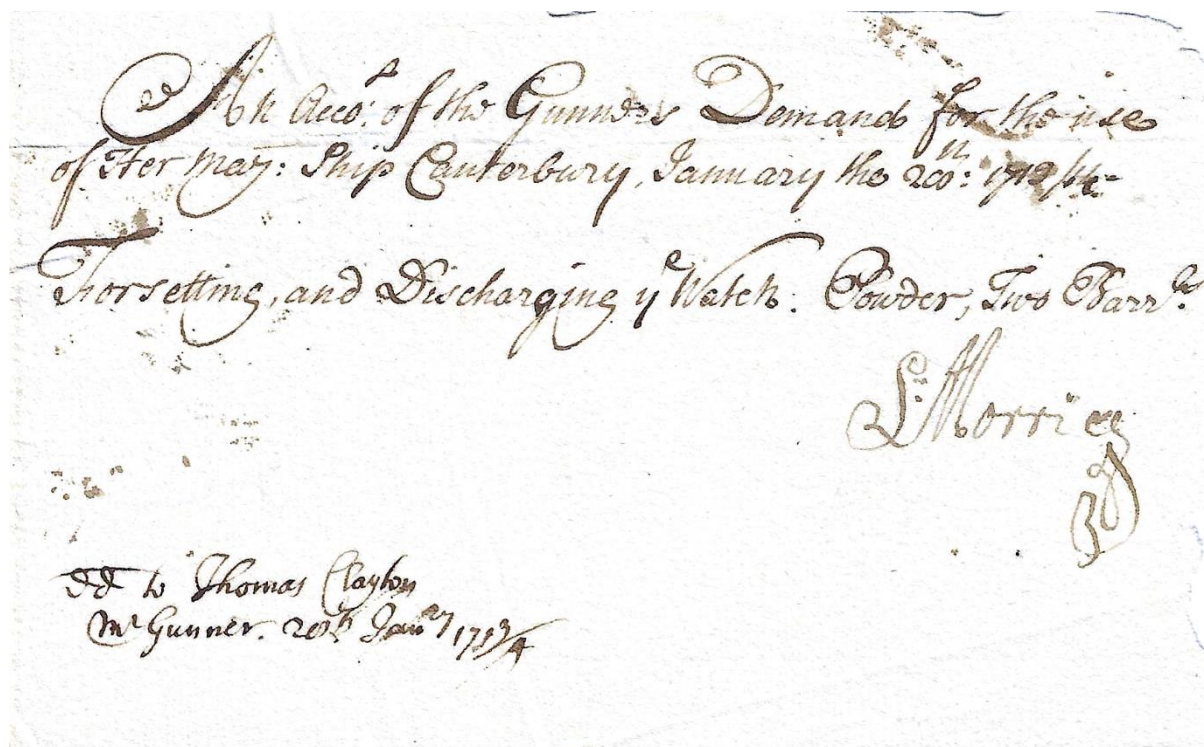 An Acco:t of the Gunners Demand for the use
of Her Maj: Ship Canterbury, January the 20:th 1713/14
For setting, and Discharging ye Watch. Powder, Two Barr:ls
L: Morrice
dd to Thomas Clayton
Mr Gunner. 20th Janry 1713/4